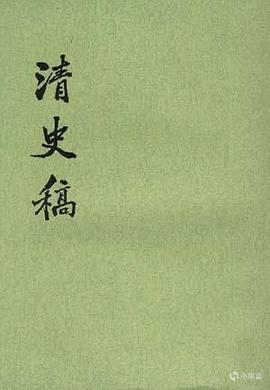 清史稿
小黑盒